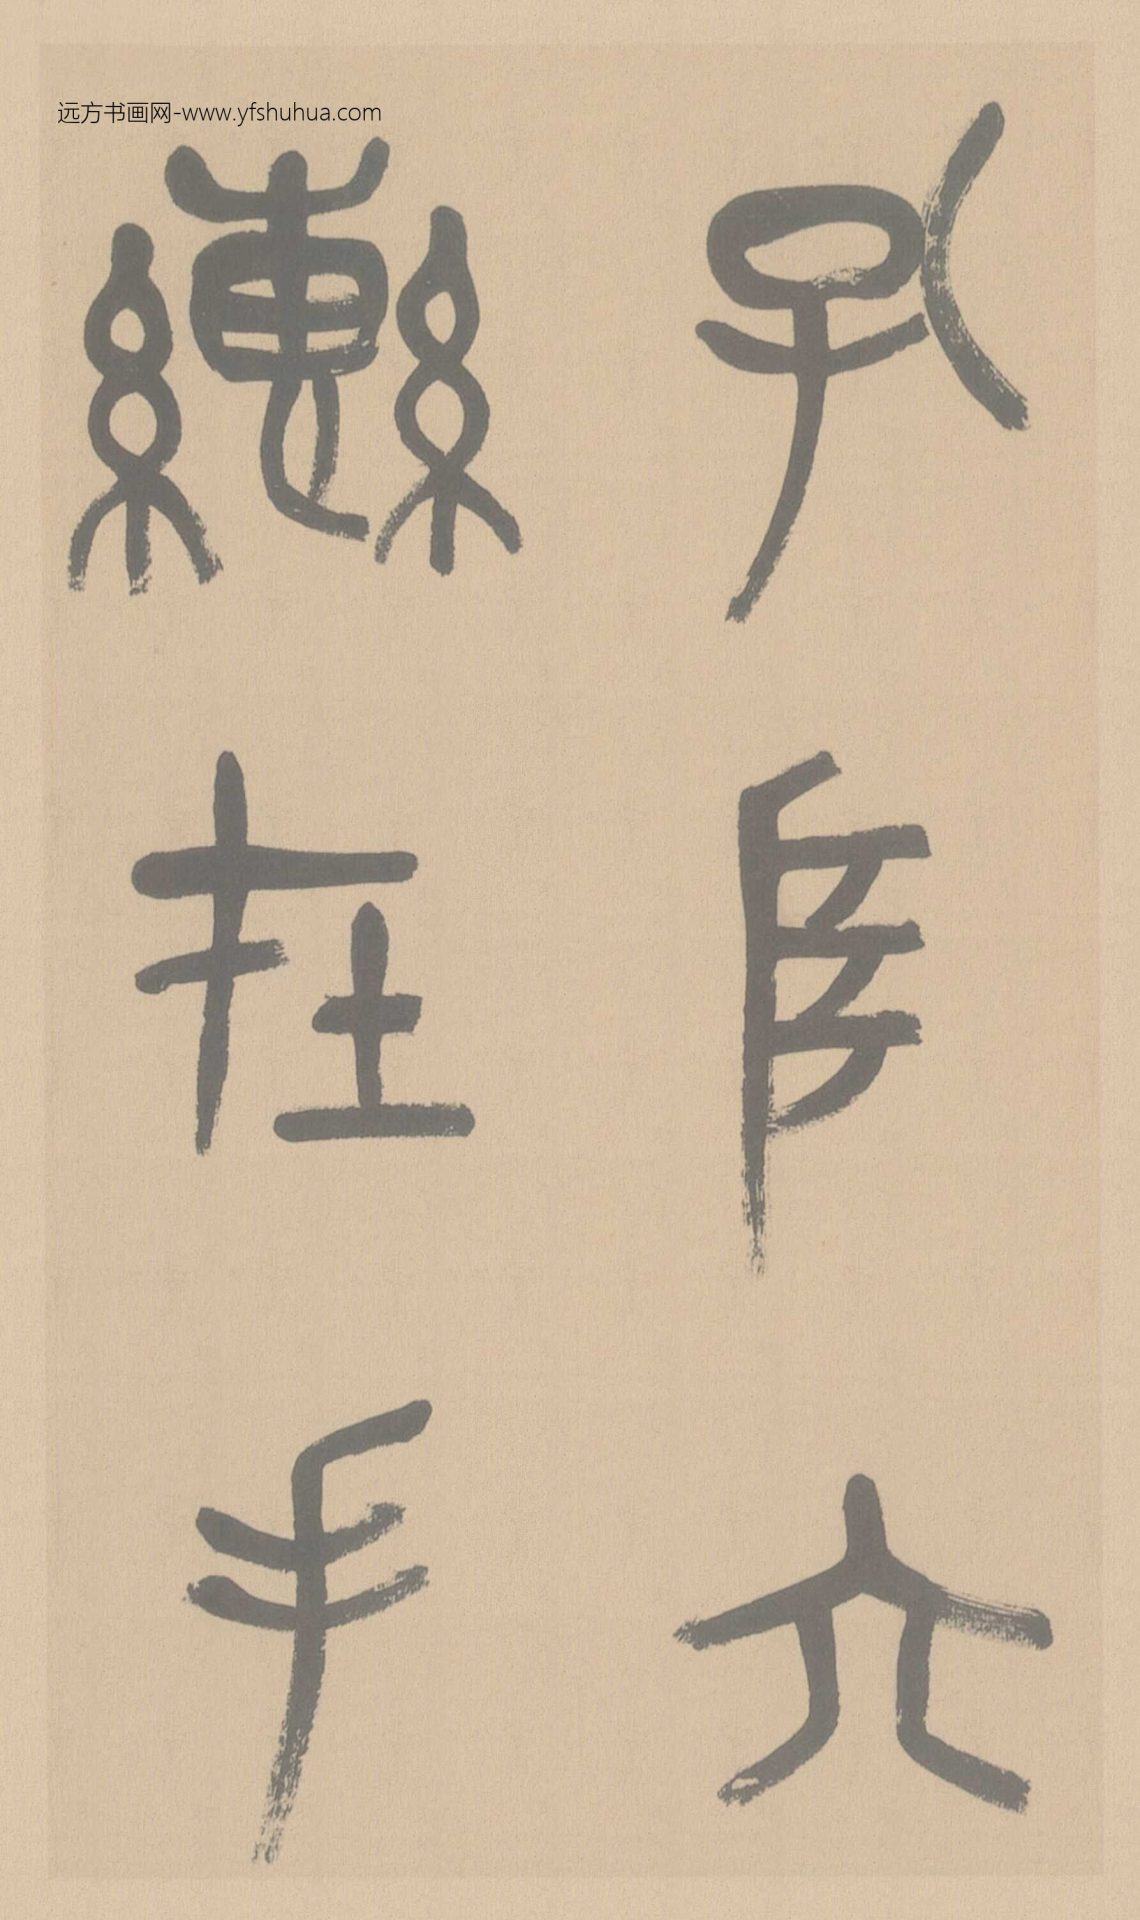 远方书画网-www.yfshuhua.com
孔阜六
轡在手